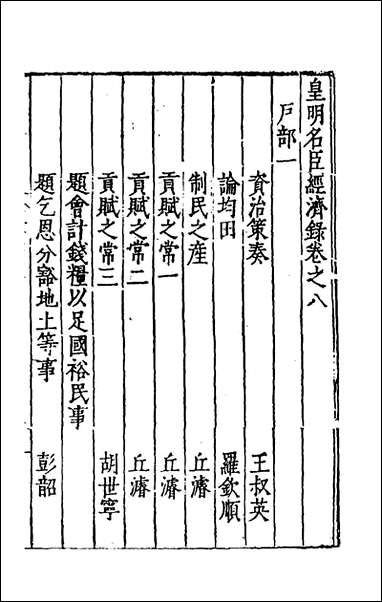 皇明名臣經濟錄卷之八
户部一
資治策奏 王叔英
論均田 羅欽順
制民之産 丘濬
貢賦之常一 丘濬
貢賦之常二 丘濬
貢賦之常三 胡世寧
題會計錢糧以足國裕民事
題乞恩分豁地土等事 彭韶